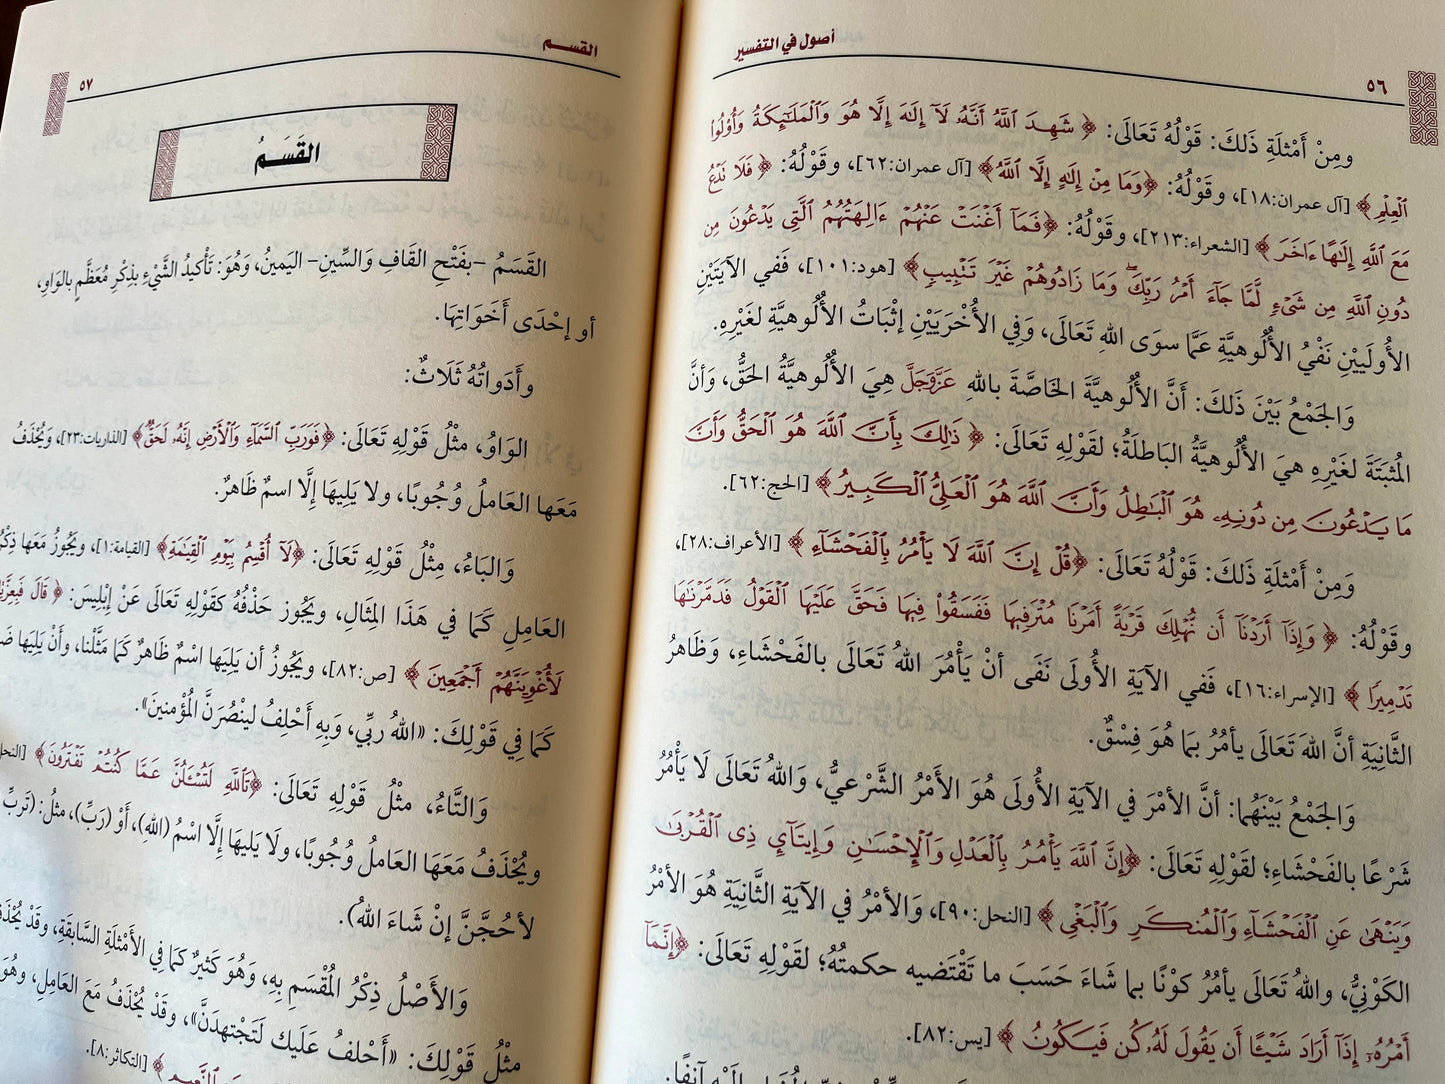 ٥٦
أصول في التفسير
ومِنْ أَمْثلَةِ ذَلكَ: قَوْلُهُ تَعَالَى: ﴿ شَهِدَ ٱللَّهُ أَنَّهُۥ لَآ إِلَٰهَ إِلَّا هُوَ وَٱلْمَلَٰٓئِكَةُ وَأُو۟لُوا۟
ٱلْعِلْمِ ﴾ [آل عمران:١٨]، وقَوْلُهُ: ﴿وَمَا مِنْ إِلَٰهٍ إِلَّا ٱللَّهُ﴾ [آل عمران:٦٢]، وقَوْلُهُ: ﴿ فَلَا نَدْعُ
مَعَ ٱللَّهِ إِلَٰهًا ءَاخَرَ ﴾ [الشعراء:٢١٣]، وقَوْلُهُ: ﴿فَمَآ أَغْنَتْ عَنْهُمْ ءَالِهَتُهُمُ ٱلَّتِى يَدْعُونَ مِن
دُونِ ٱللَّهِ مِن شَىْءٍ لَّمَّا جَآءَ أَمْرُ رَبِّكَ ۖ وَمَا زَادُوهُمْ غَيْرَ تَتْبِيبٍ﴾ [هود:١٠١]، فَفي الآيَتَيْنِ
الأُولَيينِ نَفْيُ الأُلُوهيَّةِ عَمَّا سوَى اللهِ تَعَالَى، وَفِي الأُخْرَيَيْنِ إثْبَاتُ الأُلُوهيَّةِ لغَيْرِهِ.
وَالجَمْعُ بَيْنَ ذَلكَ: أَنَّ الأُلُوهيَّةَ الخَاصَّةَ باللهِ عَزَّوَجَلَّ هِيَ الأُلُوهيَّةُ الحَقُّ، وَأنَّ
المُثبَتَةَ لغَيْرِهِ هيَ الأُلُوهيَّةُ البَاطلَةُ؛ لقَوْلِهِ تَعَالَى: ﴿ ذَٰلِكَ بِأَنَّ ٱللَّهَ هُوَ ٱلْحَقُّ وَأَنَّ
مَا يَدْعُونَ مِن دُونِهِۦ هُوَ ٱلْبَٰطِلُ وَأَنَّ ٱللَّهَ هُوَ ٱلْعَلِىُّ ٱلْكَبِيرُ ﴾ [الحج:٦٢].
وَمِنْ أَمْثلَةِ ذَلكَ: قَوْلُهُ تَعَالَى: ﴿قُلْ إِنَّ ٱللَّهَ لَا يَأْمُرُ بِٱلْفَحْشَآءِ ﴾ [الأعراف:٢٨]،
وقَوْلُهُ: ﴿ وَإِذَآ أَرَدْنَآ أَن نُّهْلِكَ قَرْيَةً أَمَرْنَا مُتْرَفِيهَا فَفَسَقُوا۟ فِيهَا فَحَقَّ عَلَيْهَا ٱلْقَوْلُ فَدَمَّرْنَٰهَا
تَدْمِيرًا ﴾ [الإسراء:١٦]، فَفي الآيَةِ الأُولَى نَفَى أنْ يَأْمُرَ اللهُ تَعَالَى بالفَحْشَاءِ، وَظَاهرُ
الثَّانِيَةِ أنَّ اللهَ تَعَالَى يأمُرُ بمَا هُوَ فِسْقٌ.
وَالجَمْعُ بَيْنَهُما: أنَّ الأمْرَ في الآيَةِ الأُولَى هُوَ الأَمْرُ الشَّرْعيُّ، وَاللهُ تَعَالَى لَا يَأْمُرُ
شَرْعًا بالفَحْشَاءِ؛ لقَوْلِهِ تَعَالَى: ﴿إِنَّ ٱللَّهَ يَأْمُرُ بِٱلْعَدْلِ وَٱلْإِحْسَٰنِ وَإِيتَآئِ ذِى ٱلْقُرْبَىٰ
وَيَنْهَىٰ عَنِ ٱلْفَحْشَآءِ وَٱلْمُنكَرِ وَٱلْبَغْىِ ﴾ [النحل:٩٠]، وَالأمْرُ في الآيَةِ الثَّانيَةِ هُوَ الأمْرُ
الكَوْنيُّ، واللهُ تَعَالَى يأمُرُ كوْنًا بما شَاءَ حَسَبَ ما تَقْتَضيه حكمتُهُ؛ لقَوْلِهِ تَعَالَى: ﴿إِنَّمَآ
أَمْرُهُۥٓ إِذَآ أَرَادَ شَيْـًٔا أَن يَقُولَ لَهُۥ كُن فَيَكُونُ ﴾ [يس:٨٢].
إلَيْهِ آنفًا.
القسم
٥٧
القَسَمُ
القَسَمُ -بفَتْحِ القَافِ وَالسِّينِ- اليَمينُ، وَهُوَ: تَأْكيدُ الشَّيْءِ بذِكْرِ مُعَظَّمٍ بالوَاوِ،
أو إحْدَى أَخَوَاتِهَا.
وأَدَواتُهُ ثَلَاثٌ:
الوَاوُ، مثْلُ قَوْلِهِ تَعَالَى: ﴿فَوَرَبِّ ٱلسَّمَآءِ وَٱلْأَرْضِ إِنَّهُۥ لَحَقٌّ﴾ [الذاريات:٢٣]، وَيُحْذَفُ
مَعَها العَاملُ وُجُوبًا، ولا يَلِيهَا إلَّا اسمٌ ظَاهرٌ.
وَالبَاءُ، مِثْلُ قَوْلِهِ تَعَالَى: ﴿لَآ أُقْسِمُ بِيَوْمِ ٱلْقِيَٰمَةِ﴾ [القيامة:١]، ويَجُوزُ مَعَها ذِكْرُ
العَامِلِ كَمَا في هَذَا المِثَالِ، ويَجُوز حَذْفُهُ كقَوْلِهِ تَعَالَى عَنْ إبْليسَ: ﴿ قَالَ فَبِعِزَّتِكَ
لَأُغْوِيَنَّهُمْ أَجْمَعِينَ ﴾ [ص:٨٢]، ويَجُوزُ أن يَلِيَها اسْمٌ ظَاهرٌ كَمَا مَثَّلْنا، وأَنْ يَلِيَها
كَمَا فِي قَوْلِكَ: «اللهُ ربِّي، وَبِهِ أَحْلِفُ لينْصُرَنَّ المُؤْمنينَ».
وَالتَّاءُ، مثْلُ قَوْلِهِ تَعَالَى: ﴿تَٱللَّهِ لَتُسْـَٔلُنَّ عَمَّا كُنتُمْ تَفْتَرُونَ﴾
ويُحْذَفُ مَعَهَا العَاملُ وُجُوبًا، ولَا يَليهَا إلَّا اسْمُ (اللهِ)، أَوْ (رَبِّ)، مثلُ: (تَربِّ
لأحُجَّنَّ إنْ شَاءَ اللهُ).
وَالأَصْلُ ذِكْرُ المُقْسَمِ بِهِ، وَهُوَ كَثيرٌ كَمَا فِي الأَمْثلَةِ السَّابقَةِ، وقَدْ يُحْذَفُ
مثْلُ قَوْلِكَ: «أَحْلفُ عَلَيك لَتَجْتهدَنَّ»، وقَدْ يُحْذَفُ مَعَ العَامِلِ، وهُوَ
[التكاثر:٨].